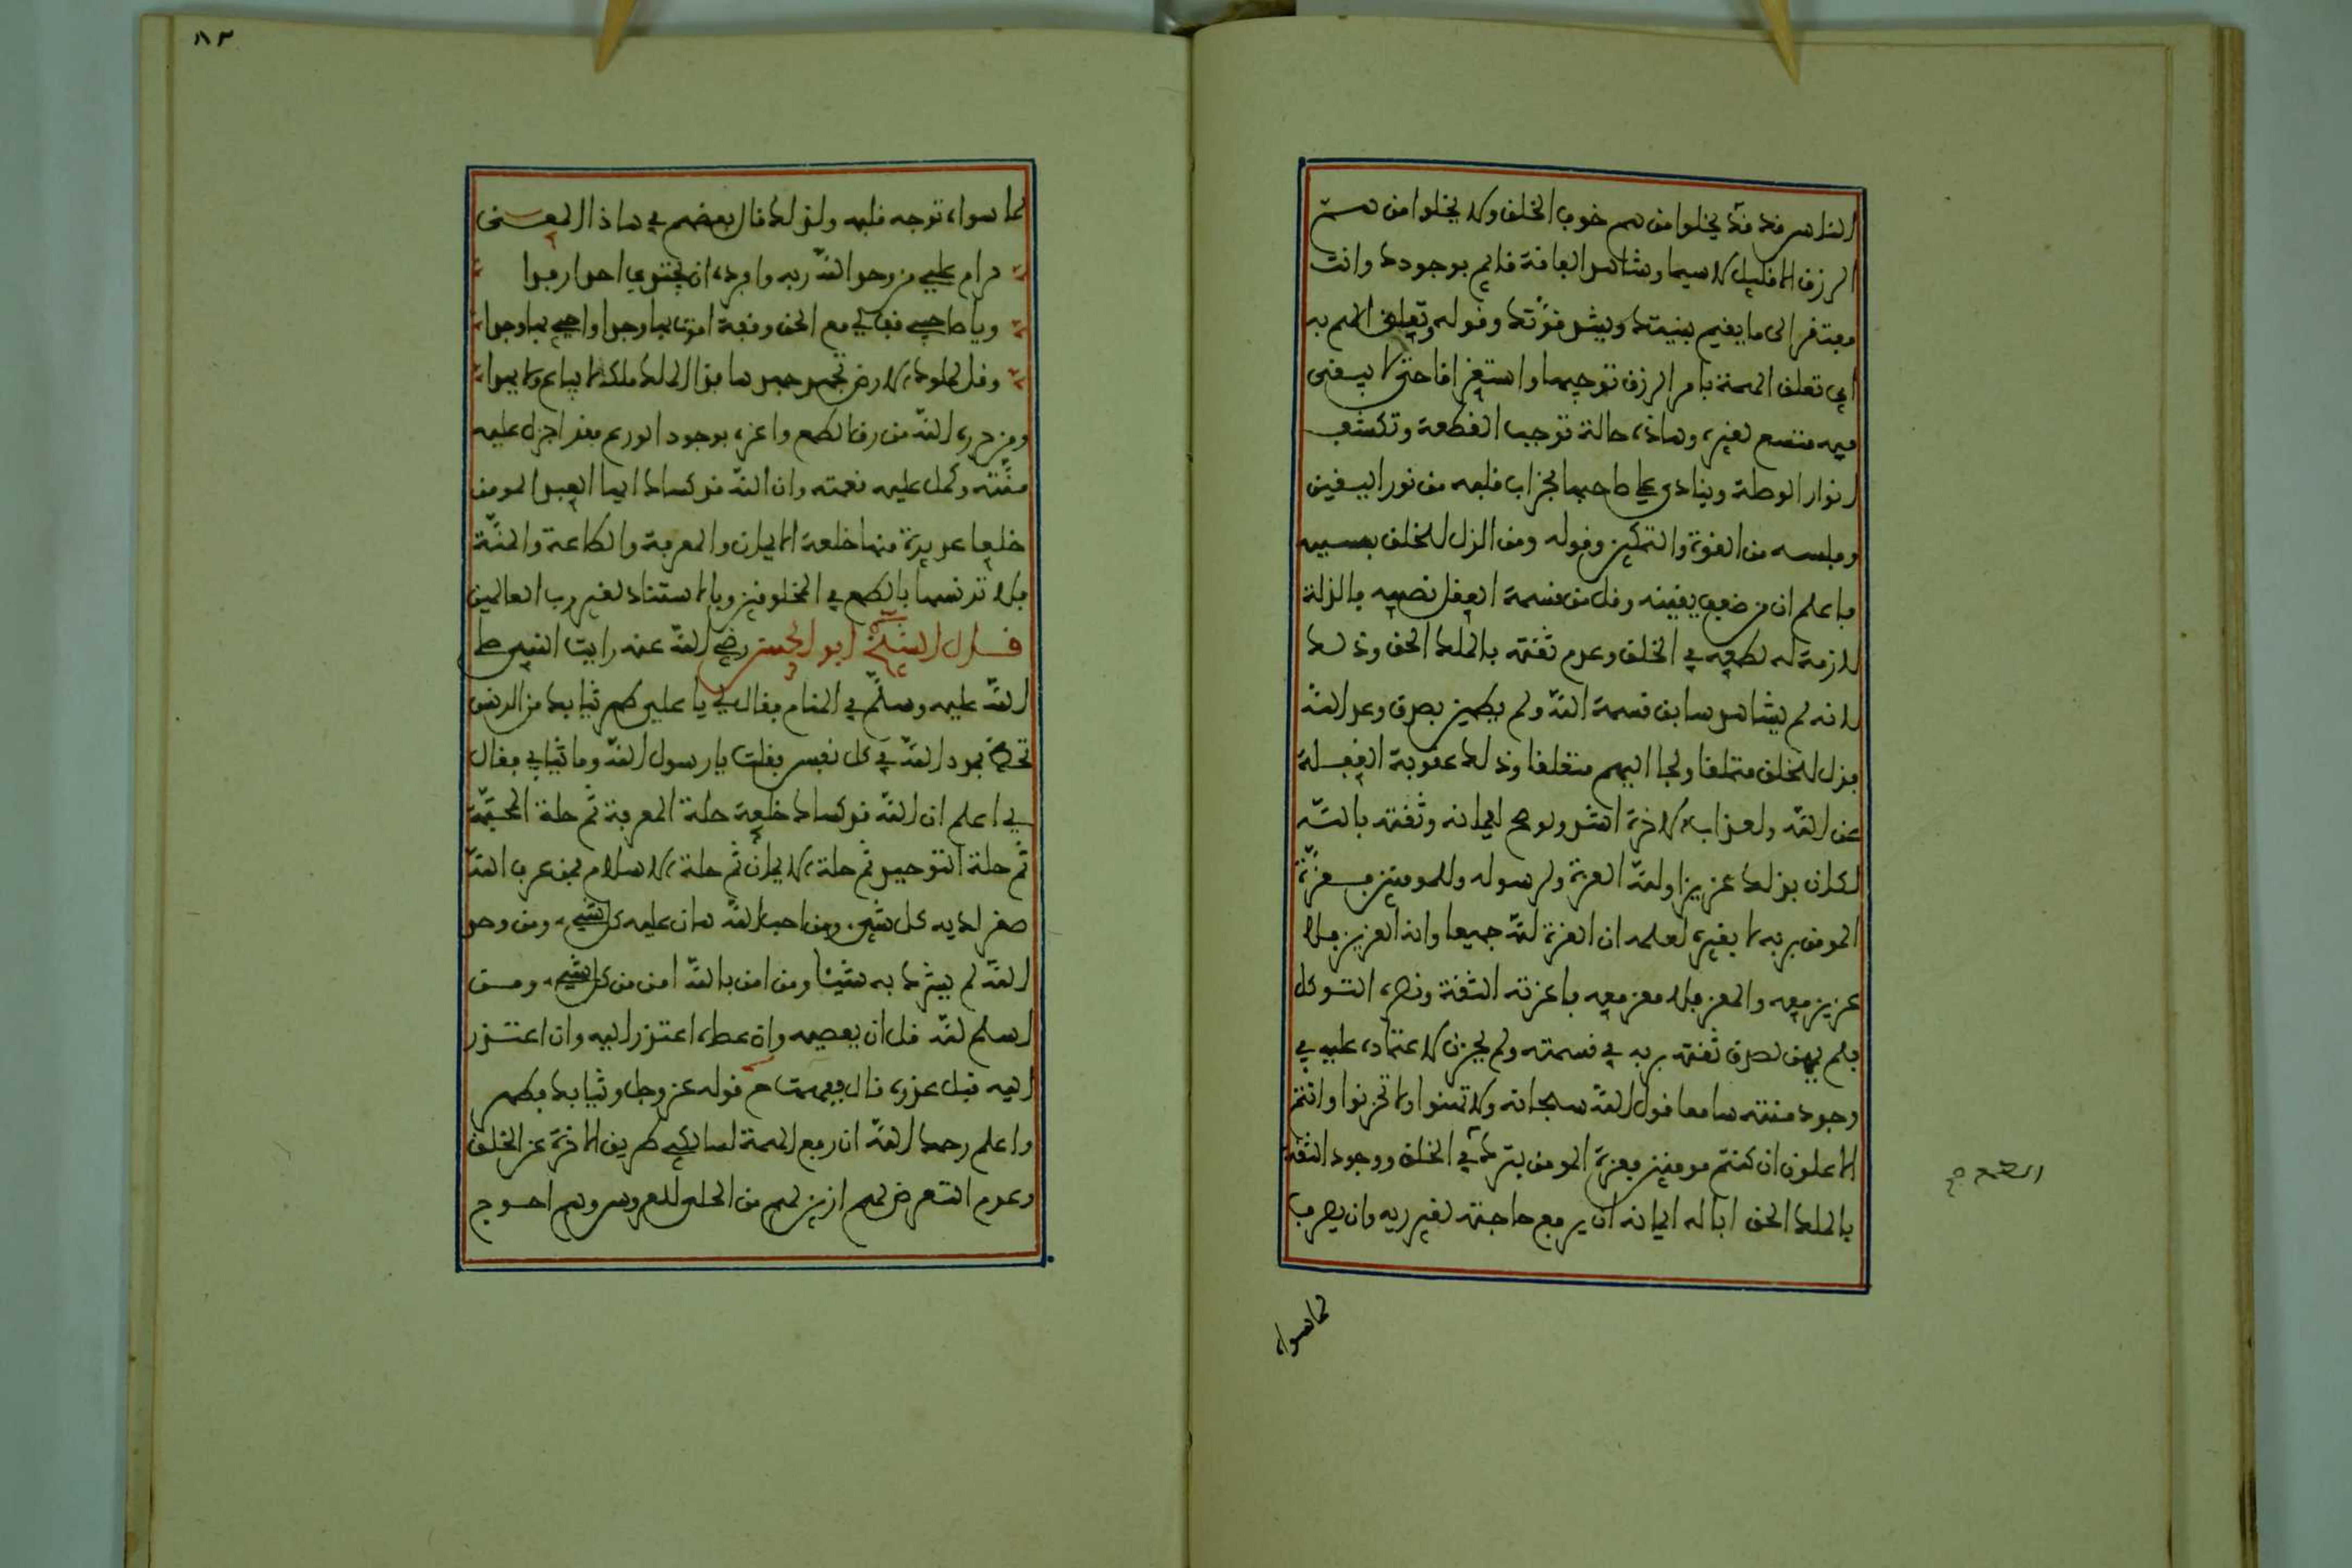 الناس فقد قد يخلوا من هم خوف الخلق ولا يخلوا من هم
الرزق الا قليل لا سيما وشاهد الفاقة قائم بوجودك وانت
مفتقر الى ما يقيم بنيتك ويشد قوتك وقوله وتعلق الهم به
اي تعلق الهمة بامر الرزق توجها واستغراقا حتى لا يبقى
فيه متسع لغيره وهاذه حالة توجب القطعة وتكشف
انوار الوصلة وينادى على صاحبها بخراب قلبه من نور اليقين
وفلسه من القوة والتمكين وقوله ومن الذل للخلق بسببه
فاعلم ان من ضعف يقينه وقل من قسمة العقل نصيبه فالذلة
لازمة له لطمعه في الخلق وعدم ثقته بالملك الحق وذلك
لانه لم يشاهد سابق قسمة الله ولم يطمين بصدق وعد الله
فذل للخلق متملقا ولجا اليهم متعلقا وذلك عقوبة الغفلة
عن الله ولعذاب الاخرة اشد ولو صح ايمانه وثقته بالله
لكان بذلك عزيزا ولله العزة ولرسوله وللمومنين فعزة
المومن بربه لا بغيره لعلمه ان العزة لله جميعا وانه العزيز فلا
عزيز معه والمعز فلا معز معه فاعزته الثقة ونصره التوكل
فلم يهن لصدق ثقته بربه في قسمته ولم يحزن لاعتماده عليه في
وجود منته سامعا قول الله سبحانه ولا تهنوا ولا تحزنوا وانتم
الاعلون ان كنتم مومنين فعزة المومن بترك في الخلق ووجود الثقة
الطمع صح
بالملك الحق ابا له ايمانه ان يرفع حاجته لغير ربه وان يصرف
لما سواه
١٨٣
لما سواه توجه قلبه ولذلك قال بعضهم في هاذا المعنى
حرام على من وحد الله ربه وافرده ان يجتدي احدا رفدا
ويا صاحبي قف لي مع الحق وقفة اموت بها وجدا واحي بها وجدا
وقل لملوك الارض تجهد جهدها فذا الملك ملك لا يباع ولا يهدا
ومن حرره الله من رق الطمع واعزه بوجود الورع فقد اجزل عليه
منته وكمل عليه نعمته وان الله قد كساك ايها العبد المومن
خلعا عديدة منها خلعة الايمان والمعرفة والطاعة والسنة
فلا تدنسها بالطمع في المخلوقين وبالاستناد لغير رب العالمين
قال الشيخ ابو الحسن رضي الله عنه رايت النبي صلى
الله عليه وسلم في المنام فقال لي يا علي طهر ثيابك من الدنس
تحظ بمدد الله في كل نفس فقلت يا رسول الله وما ثيابي فقال
لي اعلم ان الله قد كساك خلعة حلة المعرفة ثم حلة المحبة
ثم حلة التوحيد ثم حلة الايمان ثم حلة الاسلام فمن عرف الله
صغر لديه كل شيء ومن احب الله هان عليه كل شيء ومن وحد
الله لم يشرك به شيئا ومن امن بالله امن من كل شيء ومن
اسلم لله قل ان يعصيه وان عصاه اعتذر اليه وان اعتذر
اليه قبل عذره قال ففهمت من قوله عز وجل وثيابك فطهر
واعلم رحمك الله ان رفع الهمة لسالكي طريق الاخرة عن الخلق
وعدم التعرض لهم ازين لهم من الحلي للعروس وهم احوج